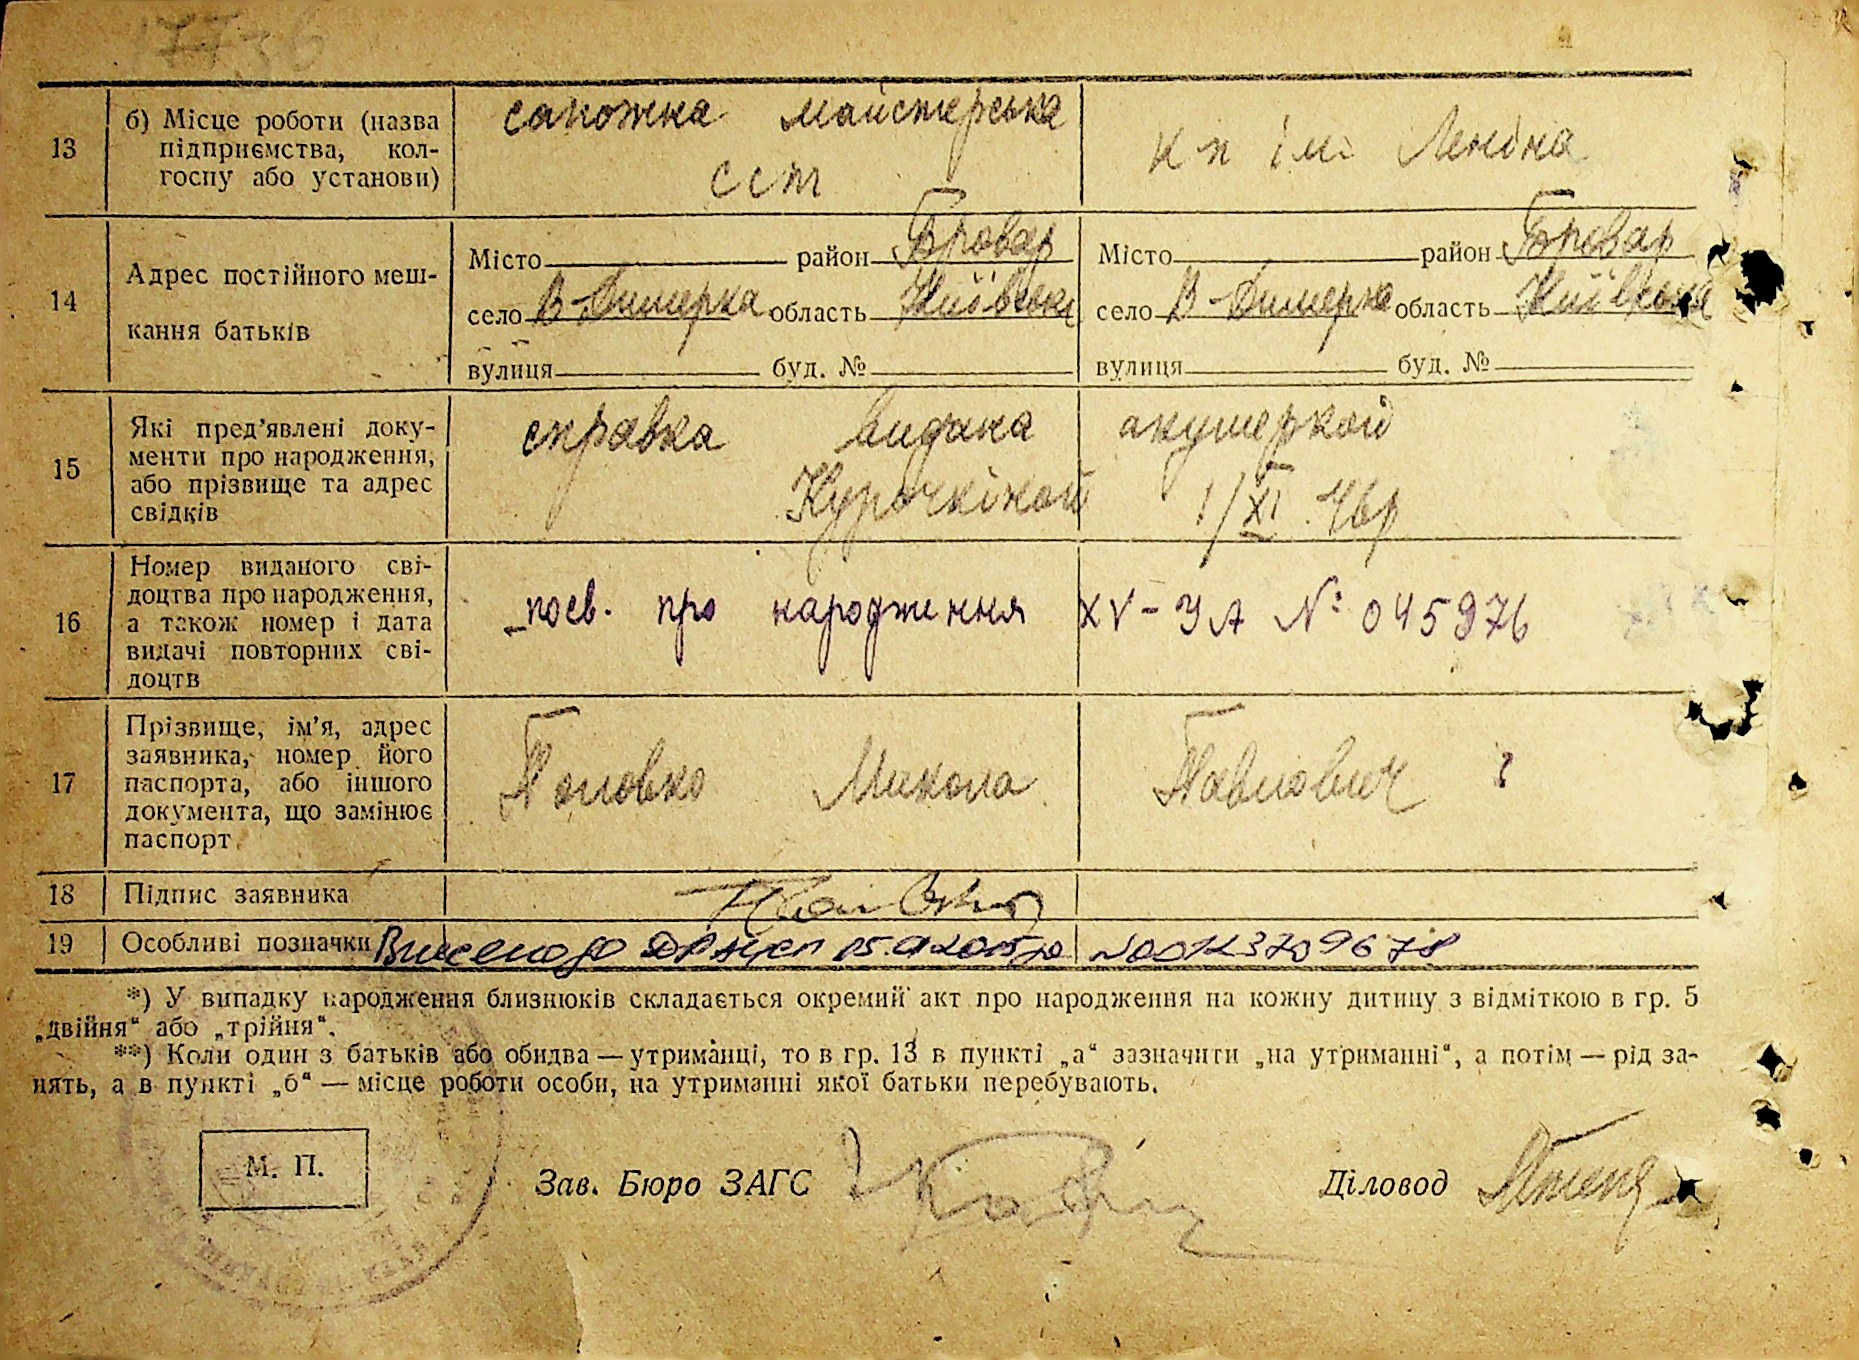 13
б) Місце роботи (назва
підприємства, кол-
госпу або установи)
сапожна майстерська
сст
к п ім. Леніна
14
Адрес постійного меш-
кання батьків
Місто район Бровар
село В-Димерка область Київська
вулиця буд. №
Місто район Бровар
село В-Димерка область Київська
вулиця буд. №
15
Які пред’явлені доку-
менти про народження,
або прізвище та адрес
свідків
справка видана акушеркой
Курочкіной 1/XI 46р
16
Номер виданого сві-
доцтва про народження,
а також номер і дата
видачі повторних сві-
доцтв
посв. про народження XV-УА №: 045976
17
Прізвище, ім’я, адрес
заявника, номер його
паспорта, або іншого
документа, що замінює
паспорт
Половко Микола Павлович
18
Підпис заявника
19
Особливі позначки
Внесено до
*) У випадку народження близнюків складається окремий акт про народження на кожну дитину з відміткою в гр. 5
„двійня“ або „трійня“.
**) Коли один з батьків або обидва — утриманці, то в гр. 13 в пункті „а“ зазначити „на утриманні“, а потім — рід за-
нять, а в пункті „б“ — місце роботи особи, на утриманні якої батьки перебувають.
М. П.
Зав. Бюро ЗАГС
Діловод